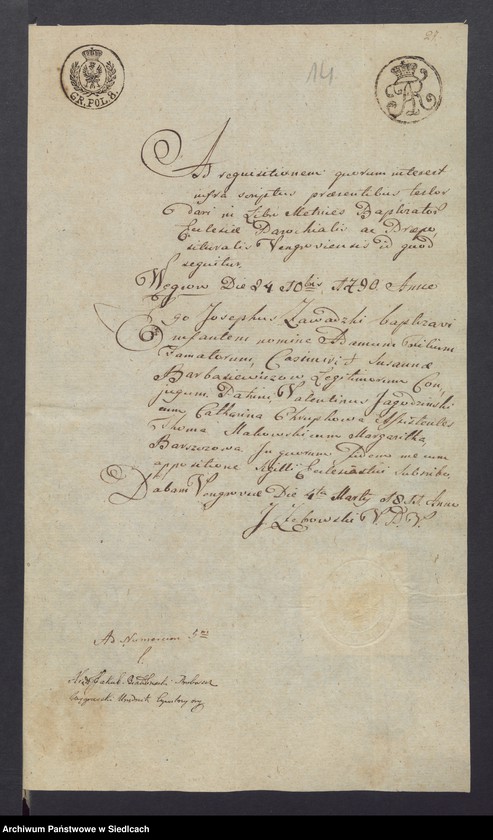 28.
14.
GR. POL. 8.
Ad requisitionem quorum interest
infra scriptus præsentibus testor
dari in Libro Metrices Baptizator
Ecclesiæ Parochialis ac Præpo
situralis Vengroviensis id quod
sequitur
Węgrow Die 24 10bris 1790 Anno
Ego Josephus Zawadzki baptizavi
infantem nomine Adamum Filium
Famatorum, Casimiri & Susannæ
Barbasiewiczow Legitimorum Con
jugum. Patrini, Valentinus Jagodzinski
cum Catharina Chrupkowa Assistentes
Thoma Makowski cum Margaritha
Barszczowa In quorum Fidem me cum
appositione Sigilli Ecclesiastici Subscribo.
Dabam Vengroviæ Die 4ta Martij 1811 Anno
J. Zębowski V. P. V.
Ad Numerum 5
Xdz Jakub Proboszcz
Węgrowski Urzednik Cywilny
Archiwum Państwowe w Siedlcach